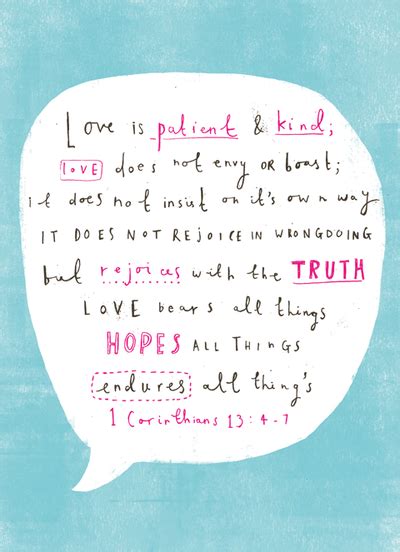 Love is patient & kind;
love does not envy or boast;
it does not insist on it's own way
IT DOES NOT REJOICE IN WRONGDOING
but rejoices with the TRUTH
LOVE bears all things
HOPES ALL THINGS
endures all thing's
1 Corinthians 13:4-7